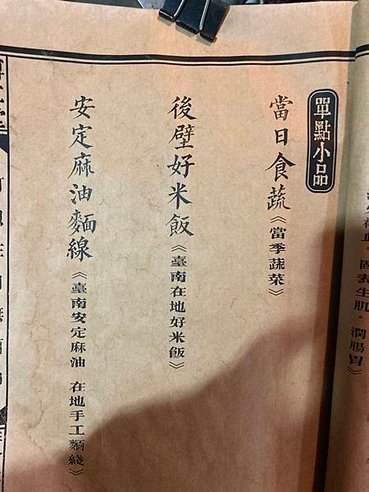 生肌。潤腸胃》
單點小品
當日食蔬《當季蔬菜》
後壁好米飯《臺南在地好米飯》
安定麻油麵線《臺南安定麻油 在地手工麵綫》